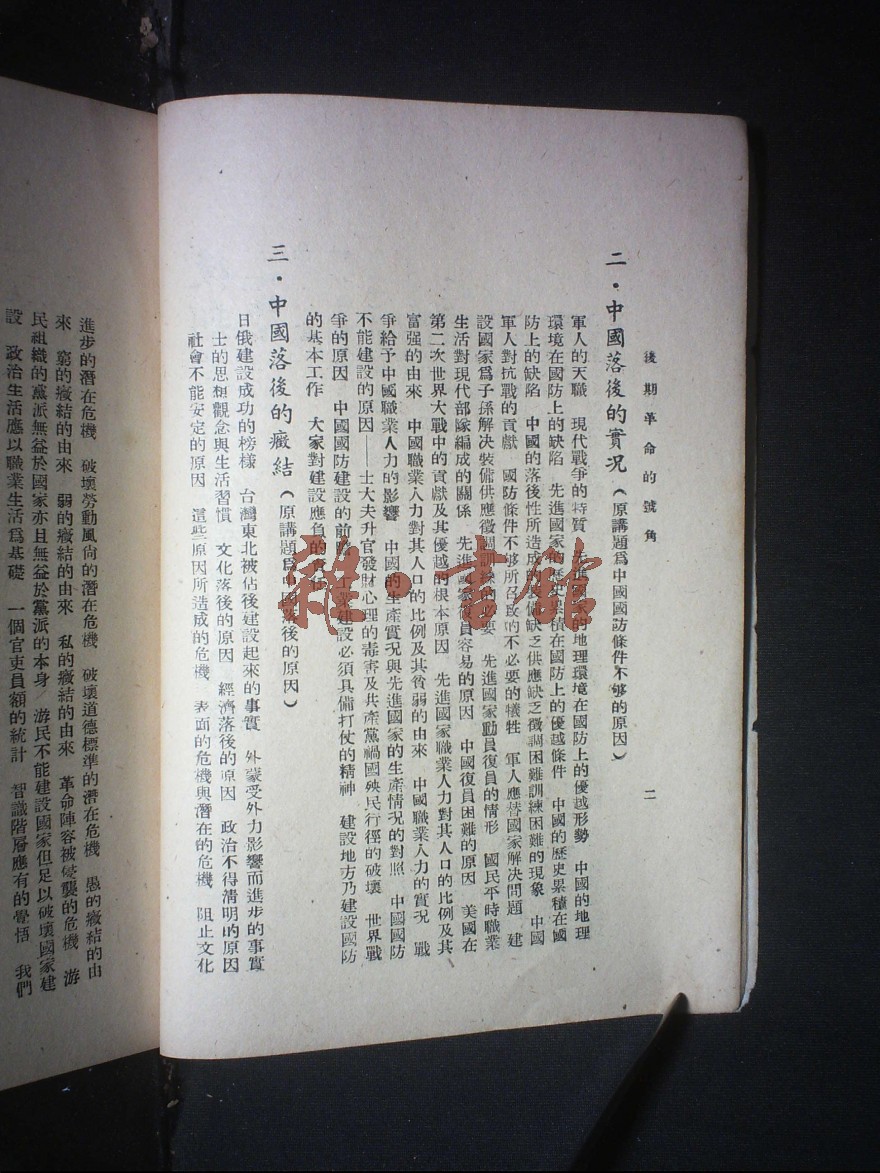 後期革命的號角
二
二・中國落後的實況（原講題爲中國國防條件不够的原因）
軍人的天職　現代戰爭的特質　先進國家的地理環境在國防上的優越形勢　中國的地理
環境在國防上的缺陷　先進國家的歷史累積在國防上的優越條件　中國的歷史累積在國
防上的缺陷　中國的落後性所造成的裝備缺乏供應缺乏徵調困難訓練困難的現象　中國
軍人對抗戰的貢獻　國防條件不够所召致的不必要的犧牲　軍人應替國家解決問題　建
設國家爲子孫解決裝備供應徵調訓練的必要　先進國家動員復員的情形　國民平時職業
生活對現代部隊編成的關係　先進國家復員容易的原因　中國復員困難的原因　美國在
第二次世界大戰中的貢獻及其優越的根本原因　先進國家職業人力對其人口的比例及其
富强的由來　中國職業人力對其人口的比例及其貧弱的由來　中國職業人力的實況　戰
爭給予中國職業人力的影響　中國的生產實況與先進國家的生產情況的對照　中國國防
不能建設的原因——士大夫升官發財心理的毒害及共產黨禍國殃民行徑的破壞　世界戰
爭的原因　中國國防建設的前 工業建設必須具備打仗的精神　建設地方乃建設國防
的基本工作　大家對建設應負的責
三・中國落後的癥結（原講題爲中國落後的原因）
日俄建設成功的榜樣　台灣東北被佔後建設起來的事實　外蒙受外力影響而進步的事實
士的思想觀念與生活習慣　文化落後的原因　經濟落後的原因　政治不得清明的原因
社會不能安定的原因　這些原因所造成的危機　表面的危機與潛在的危機　阻止文化
進步的潛在危機　破壞勞動風尙的潛在危機　破壞道德標準的潛在危機　愚的癥結的由
來　窮的癥結的由來　弱的癥結的由來　私的癥結的由來　革命陣容被侵襲的危機　游
民組織的黨派無益於國家亦且無益於黨派的本身　游民不能建設國家但足以破壞國家建
設　政治生活應以職業生活爲基礎　一個官吏員額的統計　智識階層應有的覺悟　我們
雜・書館